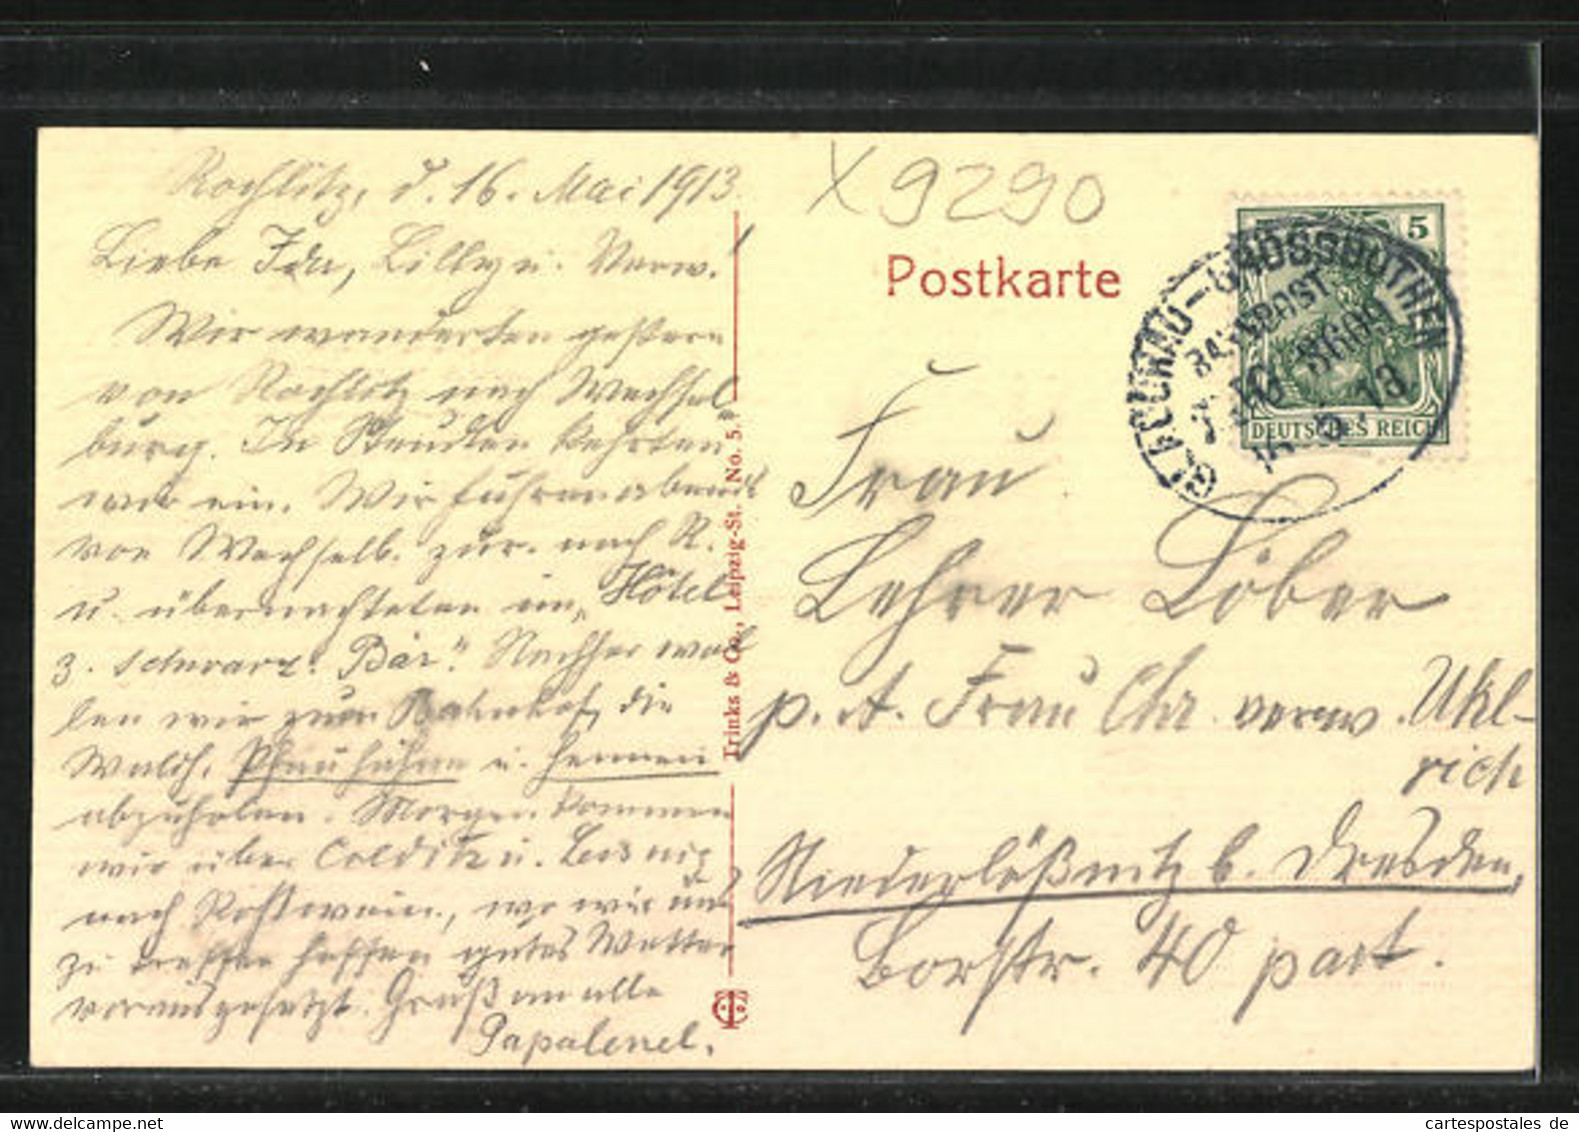 Rochlitz, d. 16. Mai 1913.
Liebe Ida, Lilly u. Verw.!
Wir wanderten gestern
von Rochlitz nach Wechsel-
burg. In Steudten kehrten
wir ein. Wir fuhren abends
von Wechselb. zur. nach R.
u. übernachteten im „Hôtel
z. schwarz. Bär." Nachher wol
len wir zum Bahnhof, die
Pfauhühne u. Hennen
abzuholen. Morgen kommen
wir über Colditz u. Leisnig
nach Roßwein, wo wir uns
zu treffen hoffen gutes Wetter
vorausgesetzt. Gruß an alle
Trinks & Co., Leipzig-St. No. 5.
X 9290
Postkarte
5
DEUTSCHES REICH
GROSSBOTHEN
BAHNPOST
Frau
Lehrer Löber
p. A. Frau Chr. verw. Uhl-
rich
Niederlößnitz b. Dresden,
Borstr. 40 part.
www.cartespostales.de
cartespostales de